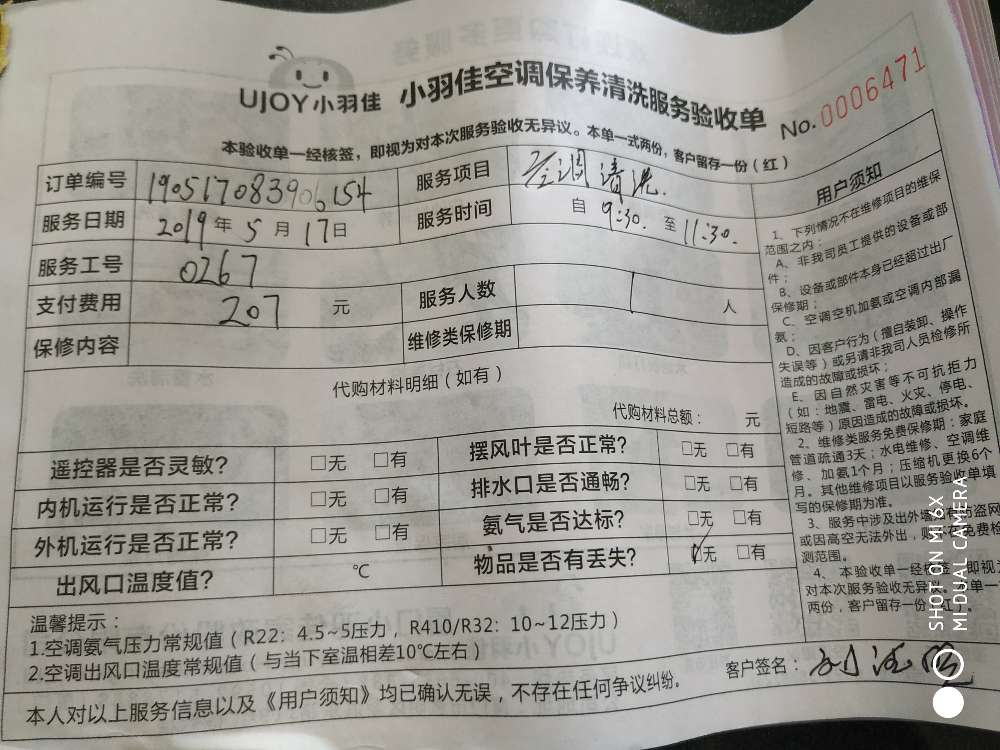 UJOY小羽佳 小羽佳空调保养清洗服务验收单 No. 0006471
本验收单一经核签，即视为对本次服务验收无异议。本单一式两份，客户留存一份（红）
订单编号 190517083906154 服务项目 空调清洗.
服务日期 2019年5月17日 服务时间 自 9:30. 至 11:30.
服务工号 0267
支付费用 207 元 服务人数 1 人
保修内容 维修类保修期
代购材料明细（如有）
代购材料总额： 元
遥控器是否灵敏? □无 □有 摆风叶是否正常? □无 □有
内机运行是否正常? □无 □有 排水口是否通畅? □无 □有
外机运行是否正常? □无 □有 氨气是否达标? □无 □有
出风口温度值? ℃ 物品是否有丢失? ☑无 □有
温馨提示：
1.空调氨气压力常规值（R22：4.5~5压力，R410/R32：10~12压力）
2.空调出风口温度常规值（与当下室温相差10℃左右）
本人对以上服务信息以及《用户须知》均已确认无误，不存在任何争议纠纷.
客户签名：
用户须知
1、下列情况不在维修项目的维保
范围之内：
A、非我司员工提供的设备或部
件；
B、设备或部件本身已经超过出厂
保修期；
C、空调空机加氨或空调内部漏
氨；
D、因客户行为（擅自装卸、操作
失误等）或另请非我司人员检修所
造成的故障或损坏；
E、因自然灾害等不可抗拒力
（如：地震、雷电、火灾、停电、
短路等）原因造成的故障或损坏。
2、维修类服务免费保修期：家庭
管道疏通3天；水电维修、空调维
修、加氨1个月；压缩机更换6个
月。其他维修项目以服务验收单填
写的保修期为准。
3、服务中涉及出外墙如有防盗网
或因高空无法外出，则不在免费检
测范围。
4、本验收单一经核签，即视为
对本次服务验收无异议。本单一式
两份，客户留存一份（红）。
SHOT ON MI 6X
MI DUAL CAMERA